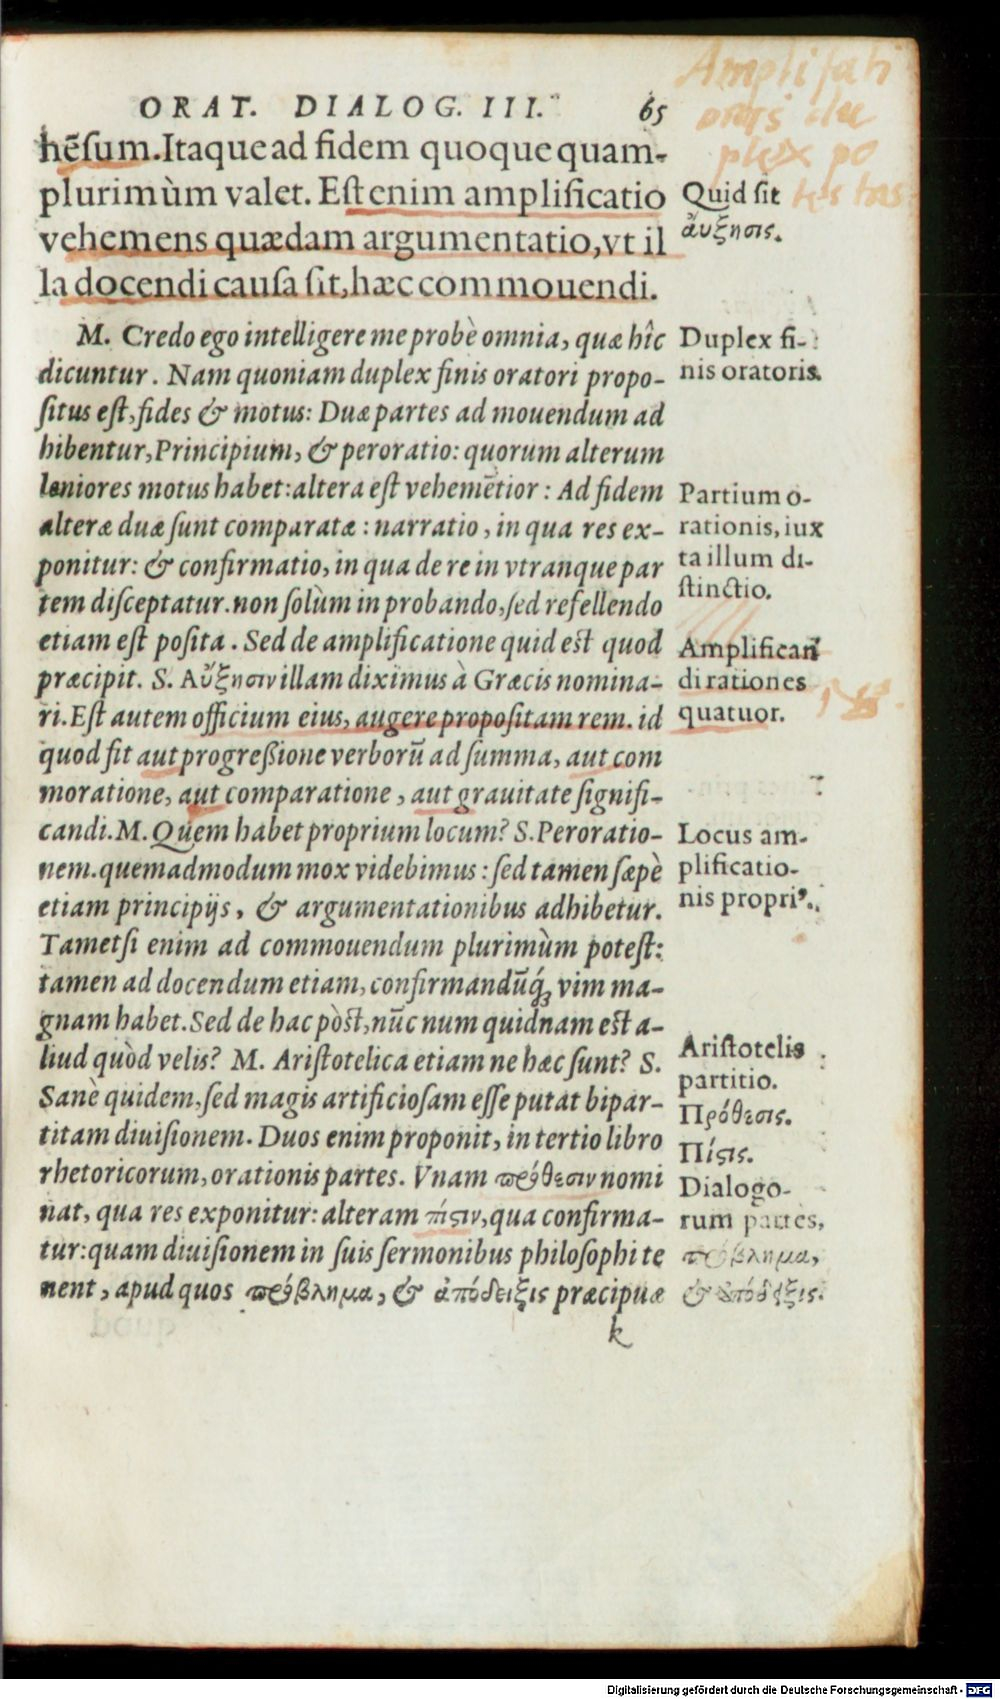 ORAT. DIALOG. III. 65
hēsum. Itaque ad fidem quoque quam-
plurimùm valet. Est enim amplificatio
vehemens quædam argumentatio, vt il
la docendi causa sit, hæc commouendi.
M. Credo ego intelligere me probè omnia, quæ hîc
dicuntur. Nam quoniam duplex finis oratori propo-
situs est, fides & motus: Duæ partes ad mouendum ad
hibentur, Principium, & peroratio: quorum alterum
leniores motus habet: altera est vehemētior: Ad fidem
alteræ duæ sunt comparatæ: narratio, in qua res ex-
ponitur: & confirmatio, in qua de re in vtranque par
tem disceptatur. non solùm in probando, sed refellendo
etiam est posita. Sed de amplificatione quid est quod
præcipit. S. Αὔξησιν illam diximus à Græcis nomina-
ri. Est autem officium eius, augere propositam rem. id
quod fit aut progressione verborū ad summa, aut com
moratione, aut comparatione, aut grauitate signifi-
candi. M. Quem habet proprium locum? S. Peroratio-
nem. quemadmodum mox videbimus: sed tamen sæpè
etiam principijs, & argumentationibus adhibetur.
Tametsi enim ad commouendum plurimùm potest:
tamen ad docendum etiam, confirmandūq́; vim ma-
gnam habet. Sed de hac pòst, nūc num quidnam est a-
liud quòd velis? M. Aristotelica etiam ne hæc sunt? S.
Sanè quidem, sed magis artificiosam esse putat bipar-
titam diuisionem. Duos enim proponit, in tertio libro
rhetoricorum, orationis partes. Vnam πρόθεσιν nomi
nat, qua res exponitur: alteram πίστιν, qua confirma-
tur: quam diuisionem in suis sermonibus philosophi te
nent, apud quos πρόβλημα, & ἀπόδειξις præcipuæ
k
Amplificati
onis du
plex po
tes tas
Quid sit
ἄυξησις.
Duplex fi-
nis oratoris.
Partium o-
rationis, iux
ta illum di-
stinctio.
Amplifican
di rationes
quatuor.
Locus am-
plificatio-
nis propri⁹.
Aristotelis
partitio.
Πρόθεσις.
Πίστις.
Dialogo-
rum partes,
πρόβλημα,
& ἀπόδειξις.
Digitalisierung gefördert durch die Deutsche Forschungsgemeinschaft - DFG